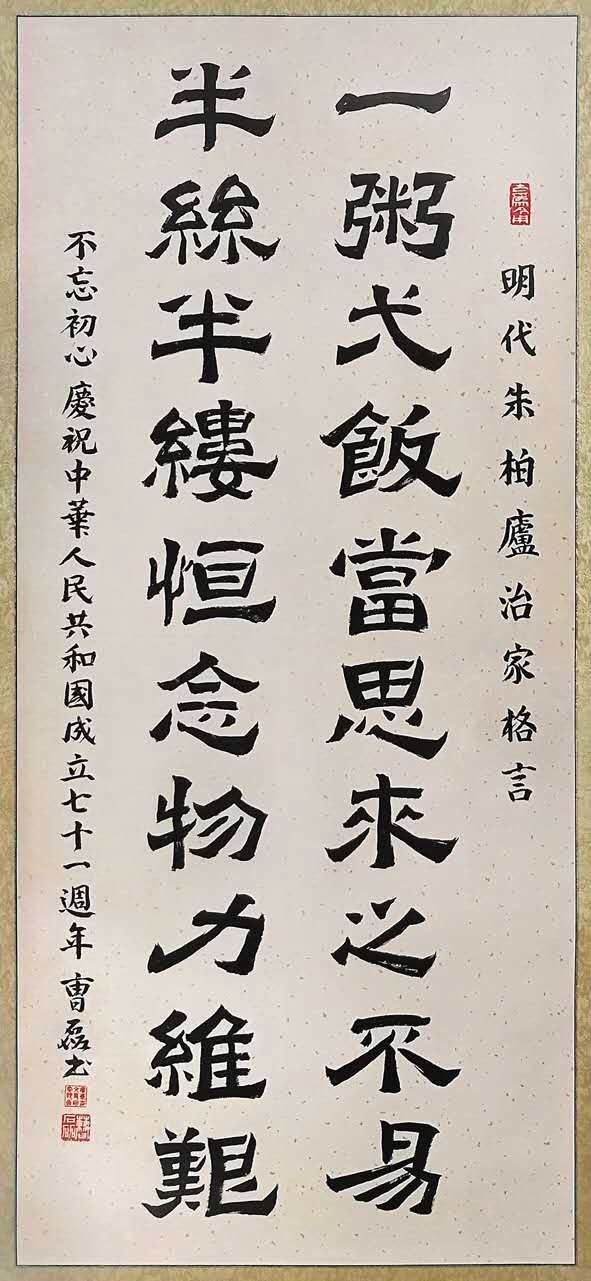 明代朱柏廬治家格言
一粥弌飯當思來之不易
半絲半縷恒念物力維艱
不忘初心慶祝中華人民共和國成立七十一週年曹磊书